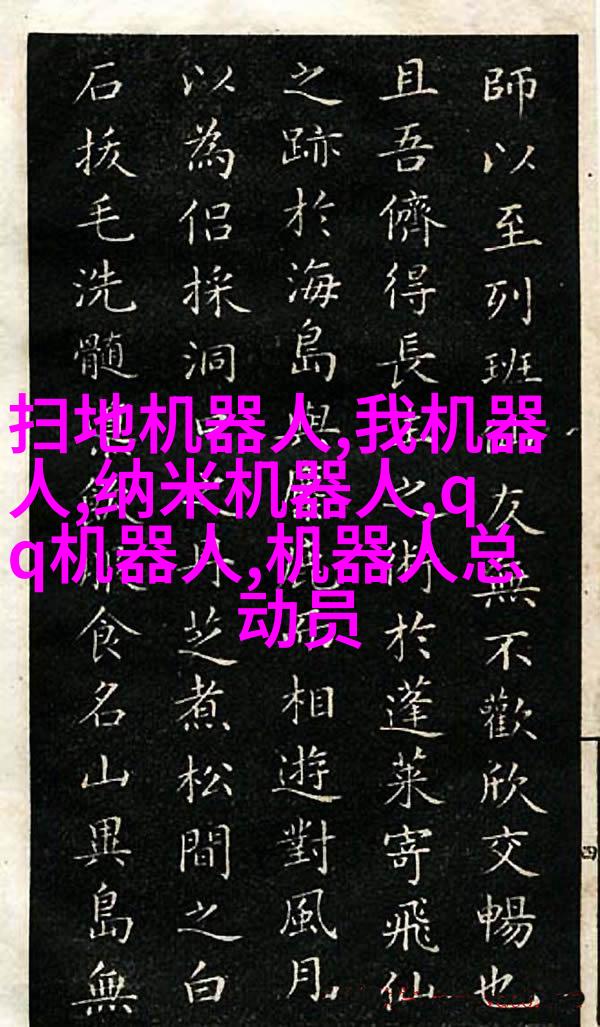 扫地机器人,我机器
人,纳米机器人,q
q机器人,机器人总
动员
師以至列班友無不歡欣交暢也
且吾儕得長之術於蓬萊寄飛仙
之跡於海島與而相遊對風月
以為侶採洞丹芝煮松間之白
石拔毛洗髓服食名山異島無
四